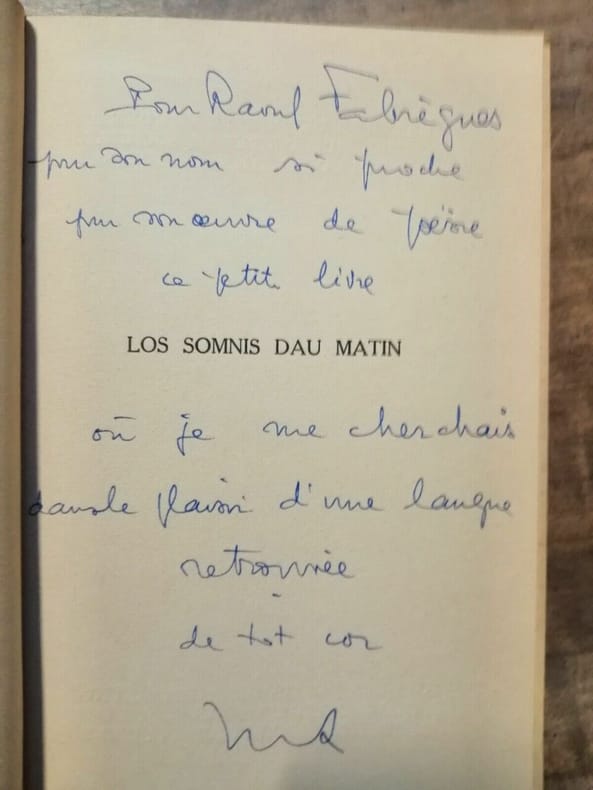 Pour Raoul Fabrègues
pour son nom si proche
pour son œuvre de poème
ce petit livre
LOS SOMNIS DAU MATIN
où je me cherchais
dans le plaisir d'une langue
retrouvée
de tot cor